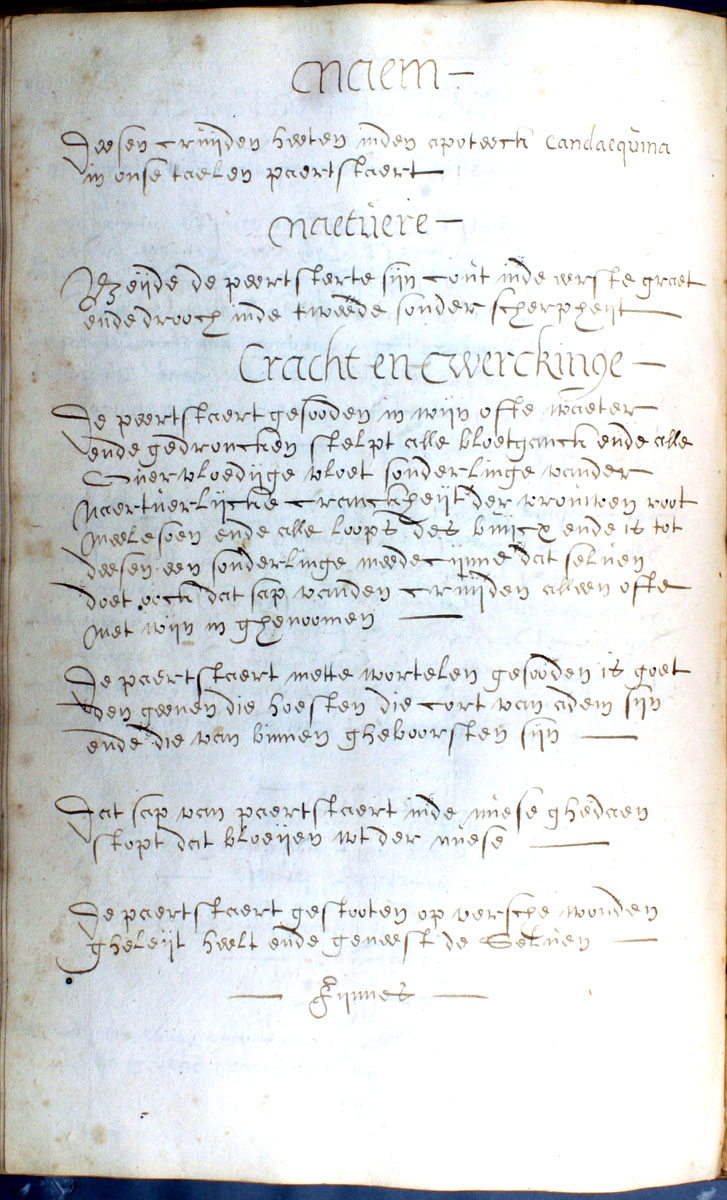 Naem —
Deesen crùijden heeten inden apoteeck Candaeqùina
in onse taelen paertstaert —
Naetùere —
Beijde de peertsterte sijn coùt inde eerste graet
ende drooch inde tweede sonder scherpheijt —
Cracht en Ewerckinge —
De peertstaert gesooden in wijn ofte waeter
ende gedroncken stelpt alle bloetganck ende alle
overvloedijge vloet sonderlinge vander
naertùerlijcke cranckheijt der vroùwen root
meelesoen ende alle loops des bùijcx ende is tot
deesen een sonderlinge meedecijnne dat selùen
doet oock dat sap vanden crùijden alleen ofte
met wijn in ghenoomen —
De paertstaert mette wortelen gesooden is goet
den geenen die hoesten die cort van adem sijn
ende die van binnen gheboorsten sijn —
Dat sap van paertstaert inde nùese ghedaen
stopt dat bloeijen wt der nùese —
De paertstaert gestooten op versche wonden
gheleijt heelt ende geneest de selùen —
— Fijnnes —